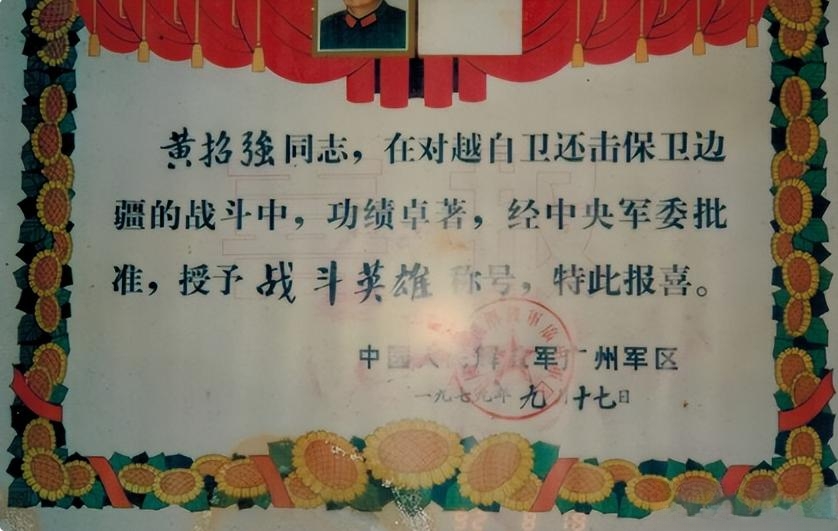 黄招強同志，在对越自卫还击保卫边
疆的战斗中，功绩卓著，经中央军委批
准，授予战斗英雄称号，特此报喜。
喜报
中国人民解放军广州军区
一九七九年九月十七日